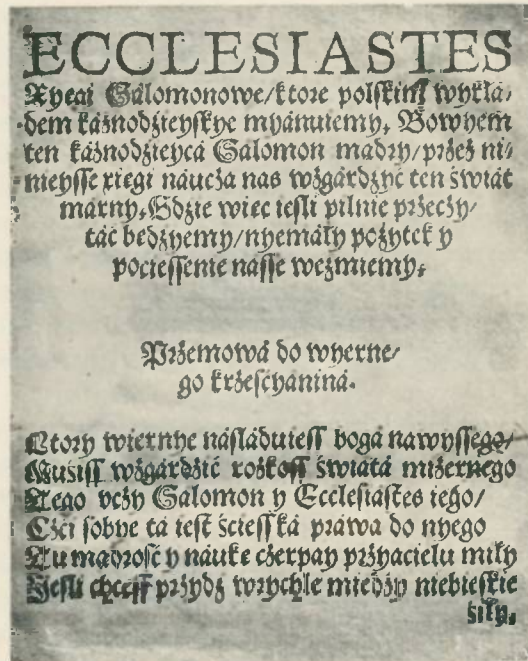 ECCLESIASTES
Xyegi Salomonowe/ktore polskim wykłá⸗
dem káznodzieyskye myánuiemy. Bowyem
ten káznodzieycá Salomon mądry/przez ni⸗
nieysse xięgi náucza nas wzgárdzyć ten świát
márny. Gdzie więc iesli pilnie przeczy⸗
tác będzyemy/nyemáły pożytek y
pociessenie nasse weźmiemy.
Przemowá do wyerne⸗
go krześcyániná.
Ktory wiernye násláduiess bogá nawyssego/
Musiss wzgárdzić roskoss świátá mizernego
Tego vczy Salomon y Ecclesiastes iego/
Czći sobye tá iest ściesská práwa do nyego
Tu mądrość y náukę czerpay przyacielu miły
Jesli chcess przydź wrychle miedzy niebieskie
siły.